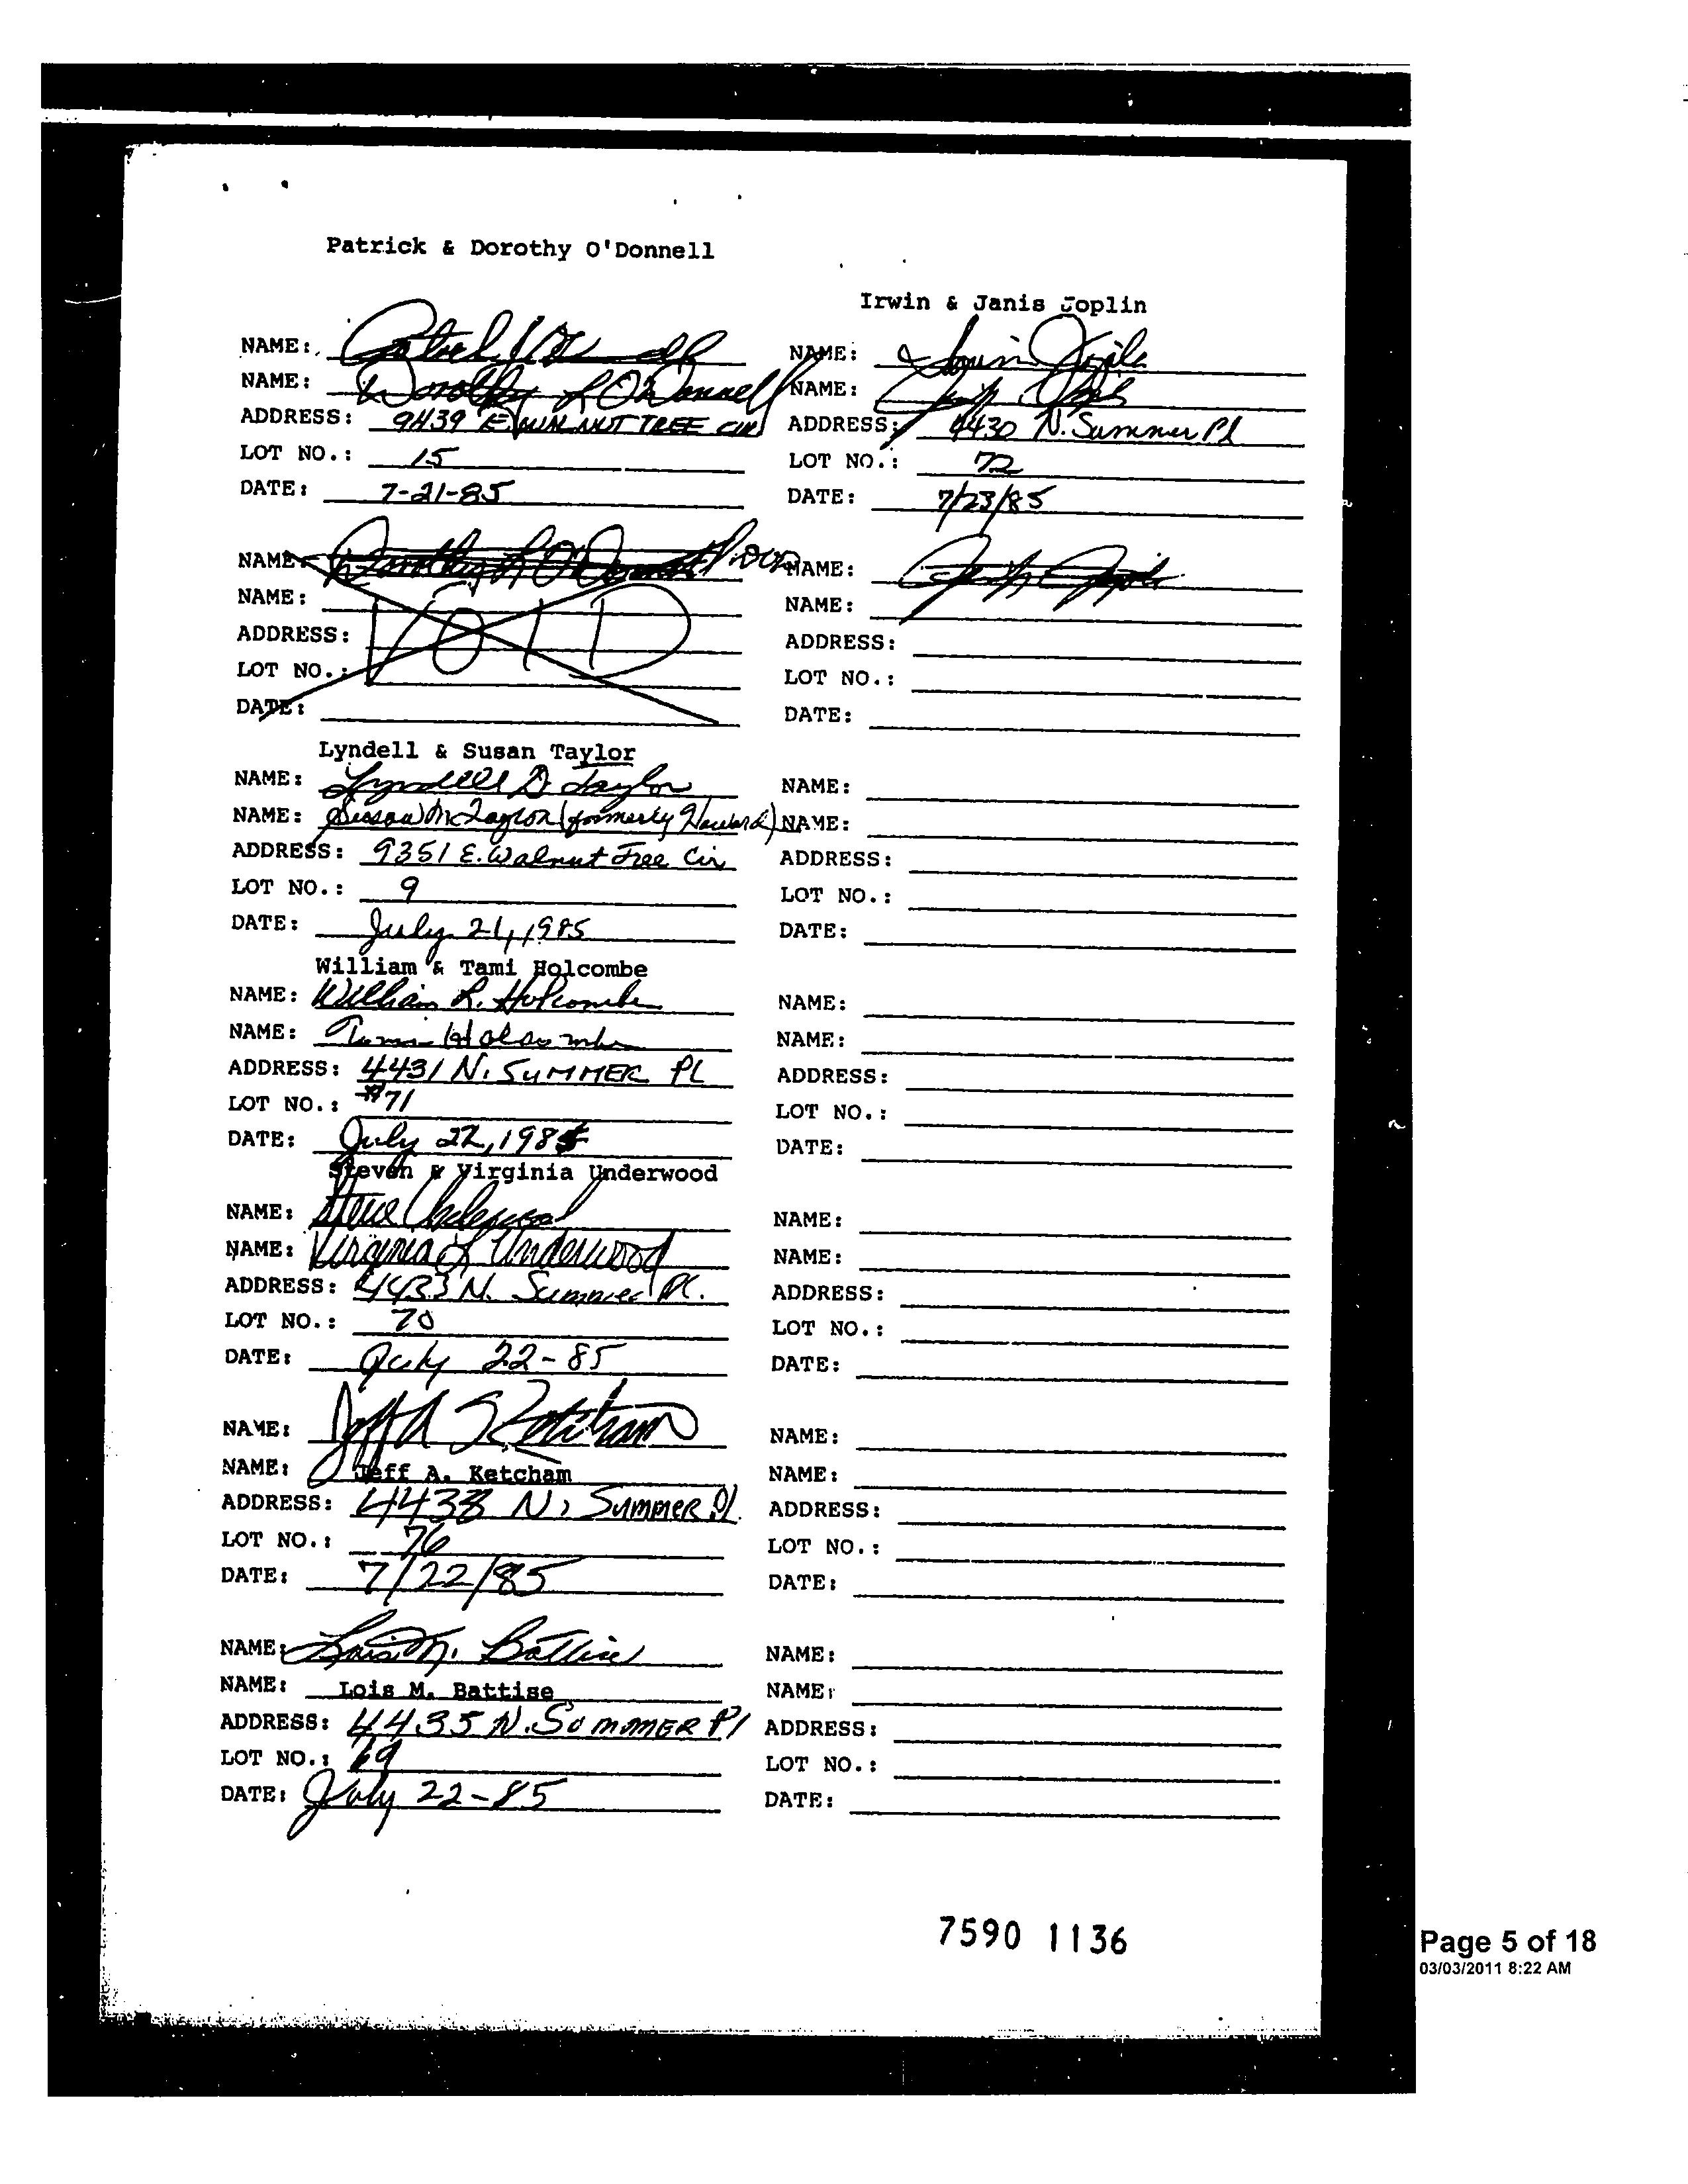 Patrick & Dorothy O'Donnell
NAME: Patrick O'Donnell
NAME: Dorothy L O'Donnell
ADDRESS: 9439 E WALNUT TREE CIR
LOT NO.: 15
DATE: 7-21-85
NAME: Dorothy L O'Donnell
NAME: VOID
ADDRESS:
LOT NO.:
DATE:
Lyndell & Susan Taylor
NAME: Lyndell D Taylor
NAME: Susan M Taylor (formerly Howard)
ADDRESS: 9351 E. Walnut Tree Cir
LOT NO.: 9
DATE: July 21, 1985
William & Tami Holcombe
NAME: William R. Holcombe
NAME: Tami Holcombe
ADDRESS: 4431 N. SUMMER PL
LOT NO.: #71
DATE: July 22, 1985
Steven & Virginia Underwood
NAME: Steve Underwood
NAME: Virginia L Underwood
ADDRESS: 4433 N. Summer Pl.
LOT NO.: 70
DATE: July 22-85
NAME: Jeff A Ketcham
NAME: Jeff A. Ketcham
ADDRESS: 4438 N. SUMMER Pl.
LOT NO.: 76
DATE: 7/22/85
NAME: Lois M. Battise
NAME: Lois M. Battise
ADDRESS: 4435 N. SUMMER Pl
LOT NO.: 69
DATE: July 22-85
Irwin & Janis Joplin
NAME: Irwin Joplin
NAME:
ADDRESS: 4430 N. Summer Pl
LOT NO.: 72
DATE: 7/23/85
NAME:
NAME:
ADDRESS:
LOT NO.:
DATE:
NAME:
NAME:
ADDRESS:
LOT NO.:
DATE:
NAME:
NAME:
ADDRESS:
LOT NO.:
DATE:
NAME:
NAME:
ADDRESS:
LOT NO.:
DATE:
NAME:
NAME:
ADDRESS:
LOT NO.:
DATE:
NAME:
NAME:
ADDRESS:
LOT NO.:
DATE:
7590 1136
Page 5 of 18
03/03/2011 8:22 AM